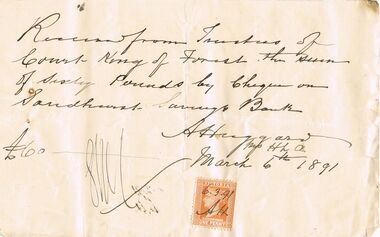 Received from Trustees of
Court King of Forest the sum
of Sixty Pounds by Cheque on
Sandhurst Savings Bank
A Haggard
£60
March 6th 1891
6.3.91
AH
ONE PENNY